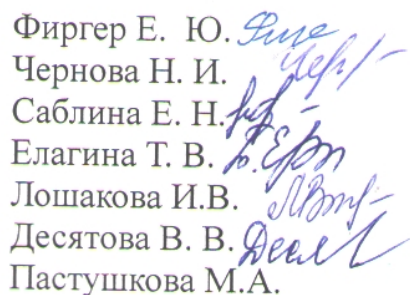 Фиргер Е. Ю.
Чернова Н. И.
Саблина Е. Н.
Елагина Т. В.
Лошакова И.В.
Десятова В. В.
Пастушкова М.А.